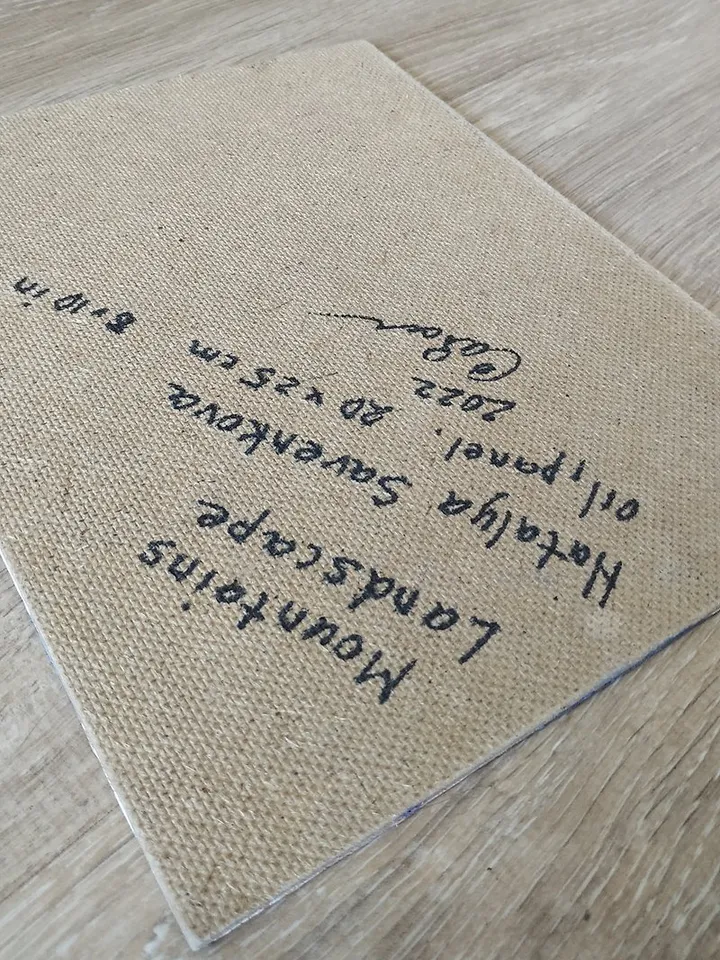 Mountains
Landscape
Natalya Savenkova
oil, panel. 20 x 25 cm 8.10 in
2022